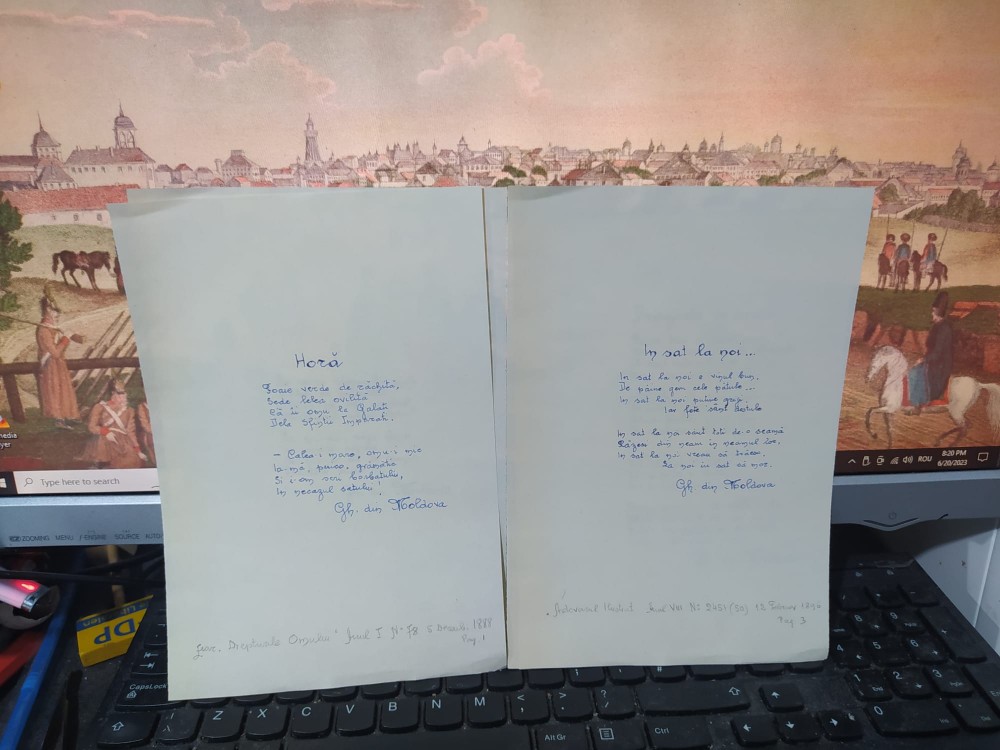 Horă
Foaie verde de răchită,
Șede lelea ovilită
Că îi omu la Galați
Dela Sfinții Împărați.
– Calea-i mare, omu-i mic
Ia-mă, puico,
Și i-om scri bărbatului,
În necazul satului!
Gh. din Moldova
In sat la noi...
In sat la noi e vinul bun,
De pâine gem cele pătule...
In sat la noi puține
Iar fete sânt destule
In sat la noi sânt toți de-o seamă
Răzeși din neam în neamul lor,
In sat la noi vreau să trăesc
La noi în sat să mor.
Gh. din Moldova
"Drepturile Omului" Anul I Nº 78 5 1888
Pag. 1
"Adevărul Ilustrat Anul VIII Nº 13
Pag. 3
Type here to search
ROU
8:20 PM
6/20/2023
ZOOMING MENU ENGINE SOURCE AUTO
DP
CapsLock
Z X C V B N M < > ? /
Alt Gr
Ctrl
1 End
2
3
0